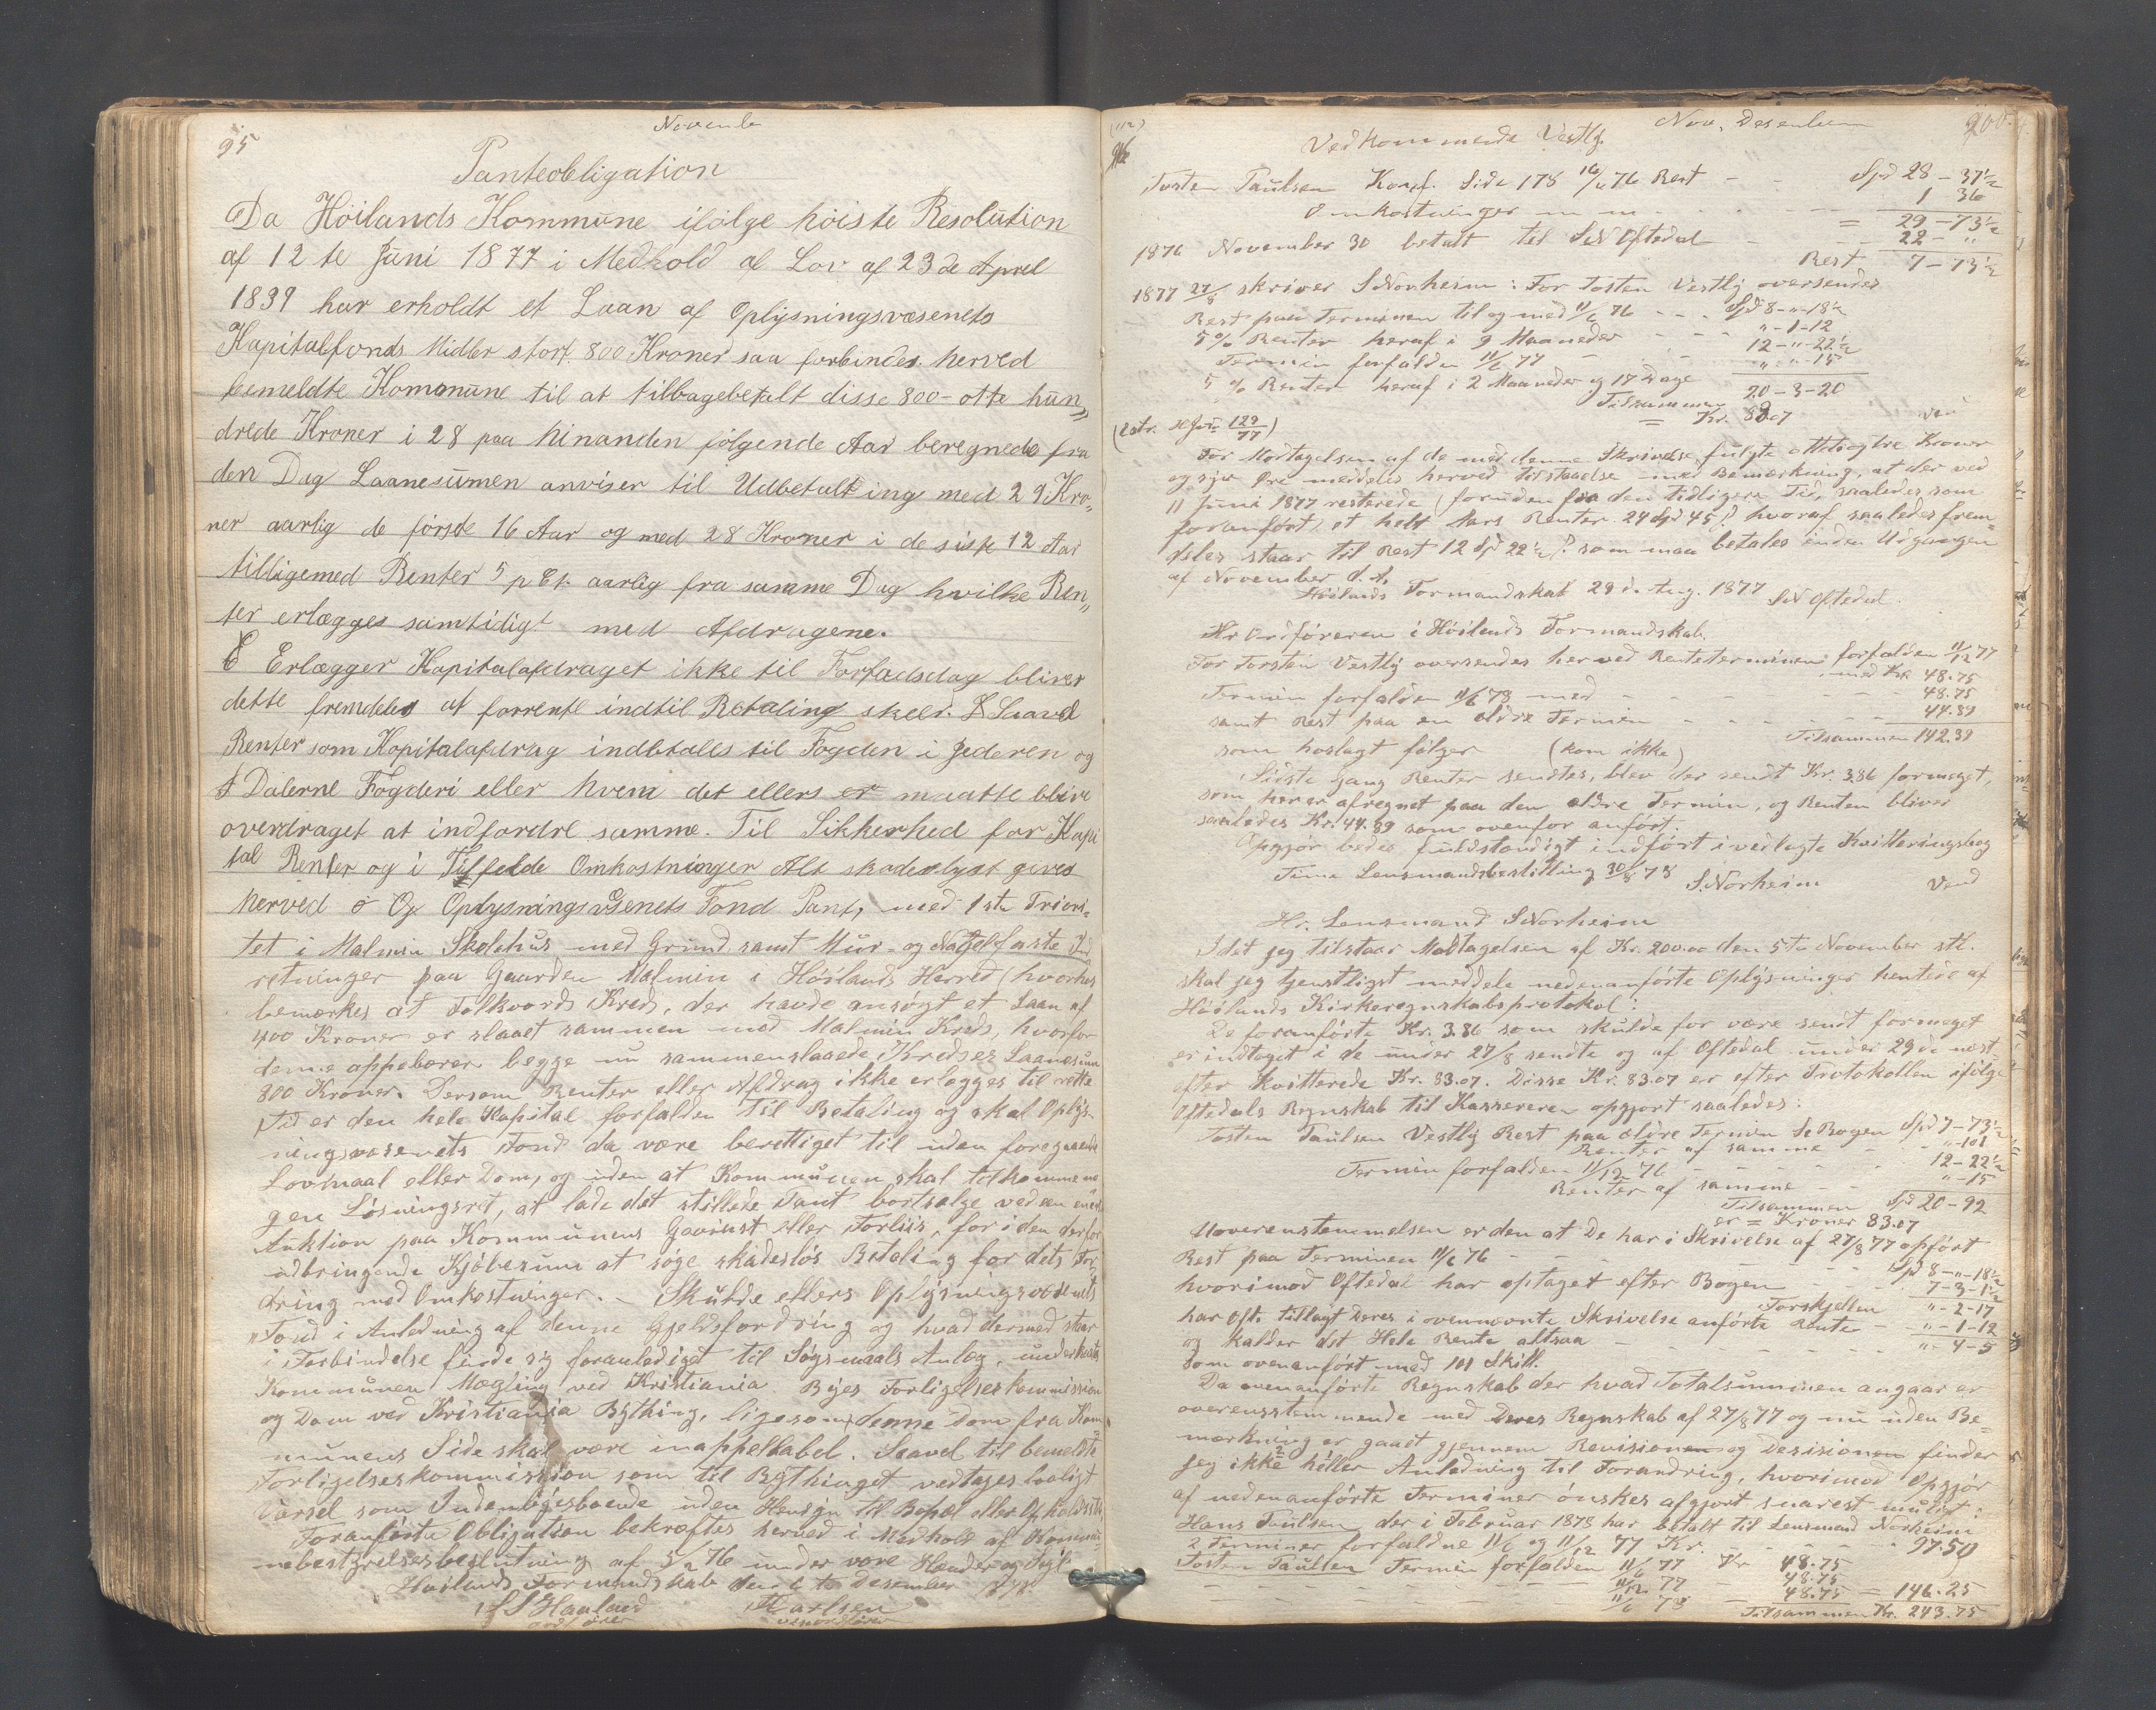 95
Novembr
Panteobligation
Da Höilands Kommune ifölge höiste Resolution
af 12te Juni 1877 i Medhold af Lov af 23de April
1839 har erholdt et Laan af Oplysningsvæsenets
Kapitalfonds Midler stort 800 Kroner saa forbindes herved
bemeldte Kommune til at tilbagebetalt disse 800 - otte hun„
drede Kroner i 28 paa hinanden følgende Aar beregnede fra
den Dag Laanesumen anviser til Udbetalting med 29 Kro„
ner aarlig de förste 16 Aar og med 28 Kroner i de siste 12 Aar
tilligemed Renter 5 p Ct. aarlig fra samme Dag hvilke Ren„
ter erlægges samtidigt med Afdragene.
Erlægger Kapitalafdraget ikke til Forfadsdag bliver
dette fremdeles at forrente indtil Betaling skeer. Saavel
Renter som Kapitalafdrag indbetales til Fogden i Jederen og
Dalerne Fogderi eller hvem det ellers er maatte blive
overdraget at indfordre samme. Til Sikkerhed for Kapi
tal Renter og i Tilfelde Omkostninger Alt skadeslyst gives
herved Oplysningsvæsenets Fond Pant, med 1ste Priori-
tet i Malmin Skolehus med Grund samt Mur- og Nagelfaste Ind
retninger paa Gaarden Malmin i Höilands Herred (hvorhos
bemærkes at Folkvords Kreds, der havde ansögt et Laan af
400 Kroner er slaaet sammen med Malmin Kreds, hvorfor
denne oppebærer begge nu sammenslaaede Kredses Laanesum
800 Kroner. Dersom Renter eller Afdrag ikke erlægges til rette
Tid er den hele Kapital forfalden til Betaling og skal Oplys-
ningsvæsenets Fond da være berettiget til uden foregaaende
Lovmaal eller Dom, og uden at Kommunen skal tilkomme no
gen Lösningsret, at lade det stillede Pant bortsælge ved en enest
Auktion paa Kommunens Gevinst eller Forliis, for i den derfor
udbringende Kjöbesum at söge skadeslös Betaling for dets For-
dring med Omkostninger. - Skulde ellers Oplysningsvæsenets
Fond i Anledning af denne Gjeldsfordring og hvad dermed staar
i Forbindelse finde sig foranlediget til Søgsmaals Anlæg, underkastes
Kommunen Mægling ved Kristiania Byes Forligelseskommission
og Dom ved Kristiania Bything, ligesom denne Dom fra Kom
munens Side skal være inappellabel. Saavel til bemeldte
Forligelseskommission som til Bythinget vedtages lovligt
Varsel som Indenbyesboende uden Hensyn til Bopæl eller Opholdssted
Foranförte Obligation bekræftes herved i Medhold af Kommu-
nebestyrelsesbeslutning af 5/2 76 under vore Hænder og Segl
Höilands Formandskab den 6te Desember 1878
S S Hauland Karlsen
ordförer viseordförer
(112)
96
Nov, Desember
200.
Vedkommende Vestly.
Tosten Paulsen Konf. Side 178 16/6 76 Rest - - Spd 28 - 37½
Omkostninger - - - 1 36
= 29 - 73½
1876 November 30 betalt til S N Oftedal - - - 22 - „
Rest 7 - 73½
1877 27/8 skriver S Norheim: For Tosten Vestly oversendes
Rest paa Terminen til og med 11/6 76 - - - Spd 8 - „ - 18½
5 % Renter heraf i 9 Maaneder - - „ - 1 - 12
Termin forfalden 11/6 77 - - - 12 - „ - 22½
5 % Renter heraf i 2 Maaneder og 17 Dage „ - „ - 15
Tilsammen 20 - 3 - 20
= Kr. 83.07
For Modtagelsen af de med denne Skrivelse fulgte ottetiogtre Kroner
og syv Öre meddeles herved Tilstaaelse med Bemærkning, at der ved
11 Juni 1877 resterede (foruden fra den tidligere Tid, saaledes som
foranfört) et helt Aars Renter 24 Spd 45 ß hvoraf saaledes frem„
deles staar til Rest 12 Spd 22½ ß som maa betales inden Udgangen
af November d. A.
Höilands Formandskab 29de Aug. 1877 S N Oftedal.
Hr Ordföreren i Höilands Formandskab.
For Torsten Vestly oversendes herved Renteterminen forfalden 11/12 77
med Kr. 48.75
Termin forfalden 11/6 78 med - - - 48.75
samt Rest paa en ældre Termin - - - 44.89
som hoslagt fölger (kom ikke) Tilsammen 142.39
Sidste Gang Renter sendtes, blev der sendt Kr. 3.86 formeget,
som her er afregnet paa den ældre Termin, og Renten bliver
saaledes Kr. 44.89 som ovenfor anfört.
Opgjör bedes fuldstændigt indfört i vedlagte Kvitteringsbog
Time Lensmandsbestilling 30/8 78 S. Norheim
Vend
Hr. Lensmand S Norheim
Idet jeg tilstaar Modtagelsen af Kr. 200.00 den 5te November stl.
skal jeg tjenstligst meddele nedenanförte Oplysninger hentede af
Höilands Kirkeregnskabsprotokol:
De foranförte Kr. 3.86 som skulde for være sendt formeget
er indtaget i de under 27/8 sendte og af Oftedal under 29de næst
efter kvitterede Kr. 83.07. Disse Kr. 83.07 er efter Protokollen ifölge
Oftedals Regnskab til Kassereren opgjort saaledes:
Tosten Paulsen Vestly Rest paa ældre Termin Se Bogen Spd 7 - 73½
Renter af samme - - „ - 101
Termin forfalden 11/12 76 - - - 12 - 22½
Renter af samme - - „ - 15
Tilsammen Spd 20 - 92
er = Kroner 83.07
Uoverenstemmelsen er den at De har i Skrivelse af 27/8 77 opfört
Rest paa Terminen 11/6 76 - - - Spd 8 - „ - 18½
hvorimod Oftedal har optaget efter Bogen - - - 7 - 3 - 1½
Forskjellen „ - 2 - 17
har Oft. tillagt Deres i ovennævnte Skrivelse anförte Rente - „ - 1 - 12
og kalder det Hele Rente altsaa - - - „ - 4 - 5
som ovenanfört med 101 Skill.
Da ovenanförte Regnskab der hvad Totalsummen angaar er
overensstemmende med Deres Regnskab af 27/8 77 og nu uden Be=
mærkning er gaaet gjennem Revisionen og Desisionen finder
jeg ikke heller Anledning til Forandring, hvorimod Opgjör
af nedenanförte Terminer önskes afgjort snarest muligt:
Hans Paulsen der i Februar 1878 har betalt til Lensmand Norheim
2 Terminer forfaldne 11/6 og 11/12 77 Kr. - - - 97.50
Tosten Paulsen Termin forfalden 11/6 77 Kr 48.75
- - - 11/12 77 - 48.75
- - - 11/6 78 - 48.75 = 146.25
Tilsammen Kr. 243.75